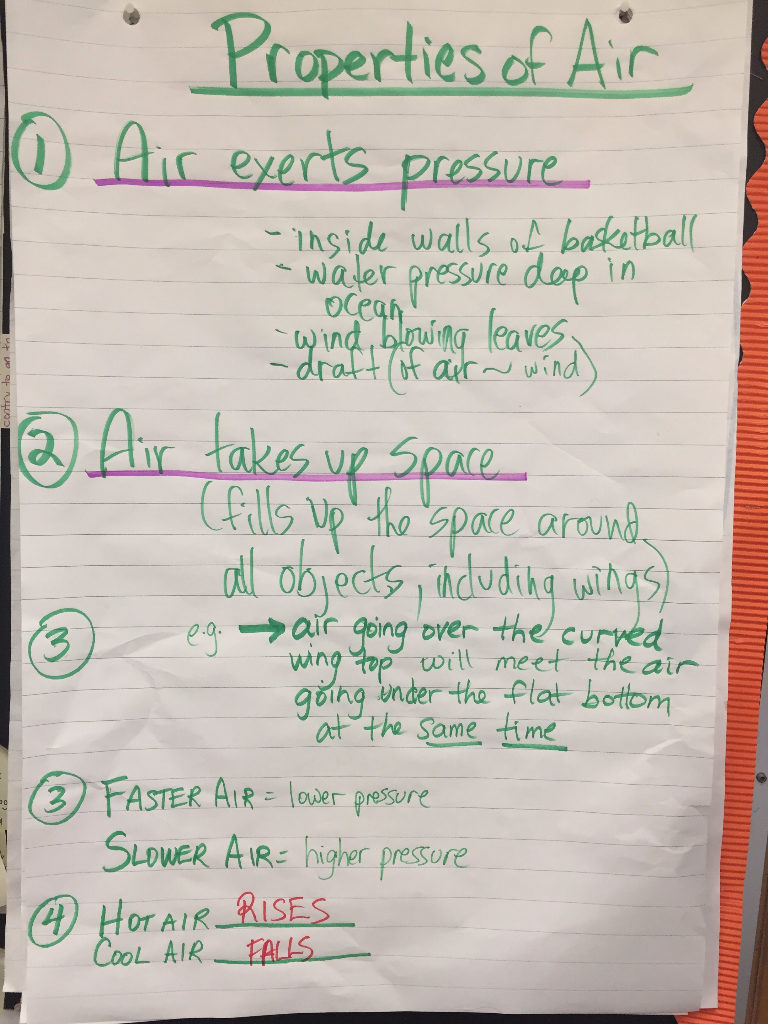 Properties of Air
1 Air exerts pressure
- inside walls of basketball
- water pressure deep in
ocean
- wind blowing leaves
- draft (of air ~ wind)
2 Air takes up space
(fills up the space around
all objects, including wings)
3 e.g. → air going over the curved
wing top will meet the air
going under the flat bottom
at the same time
3 FASTER AIR = lower pressure
SLOWER AIR = higher pressure
4 HOT AIR RISES
COOL AIR FALLS